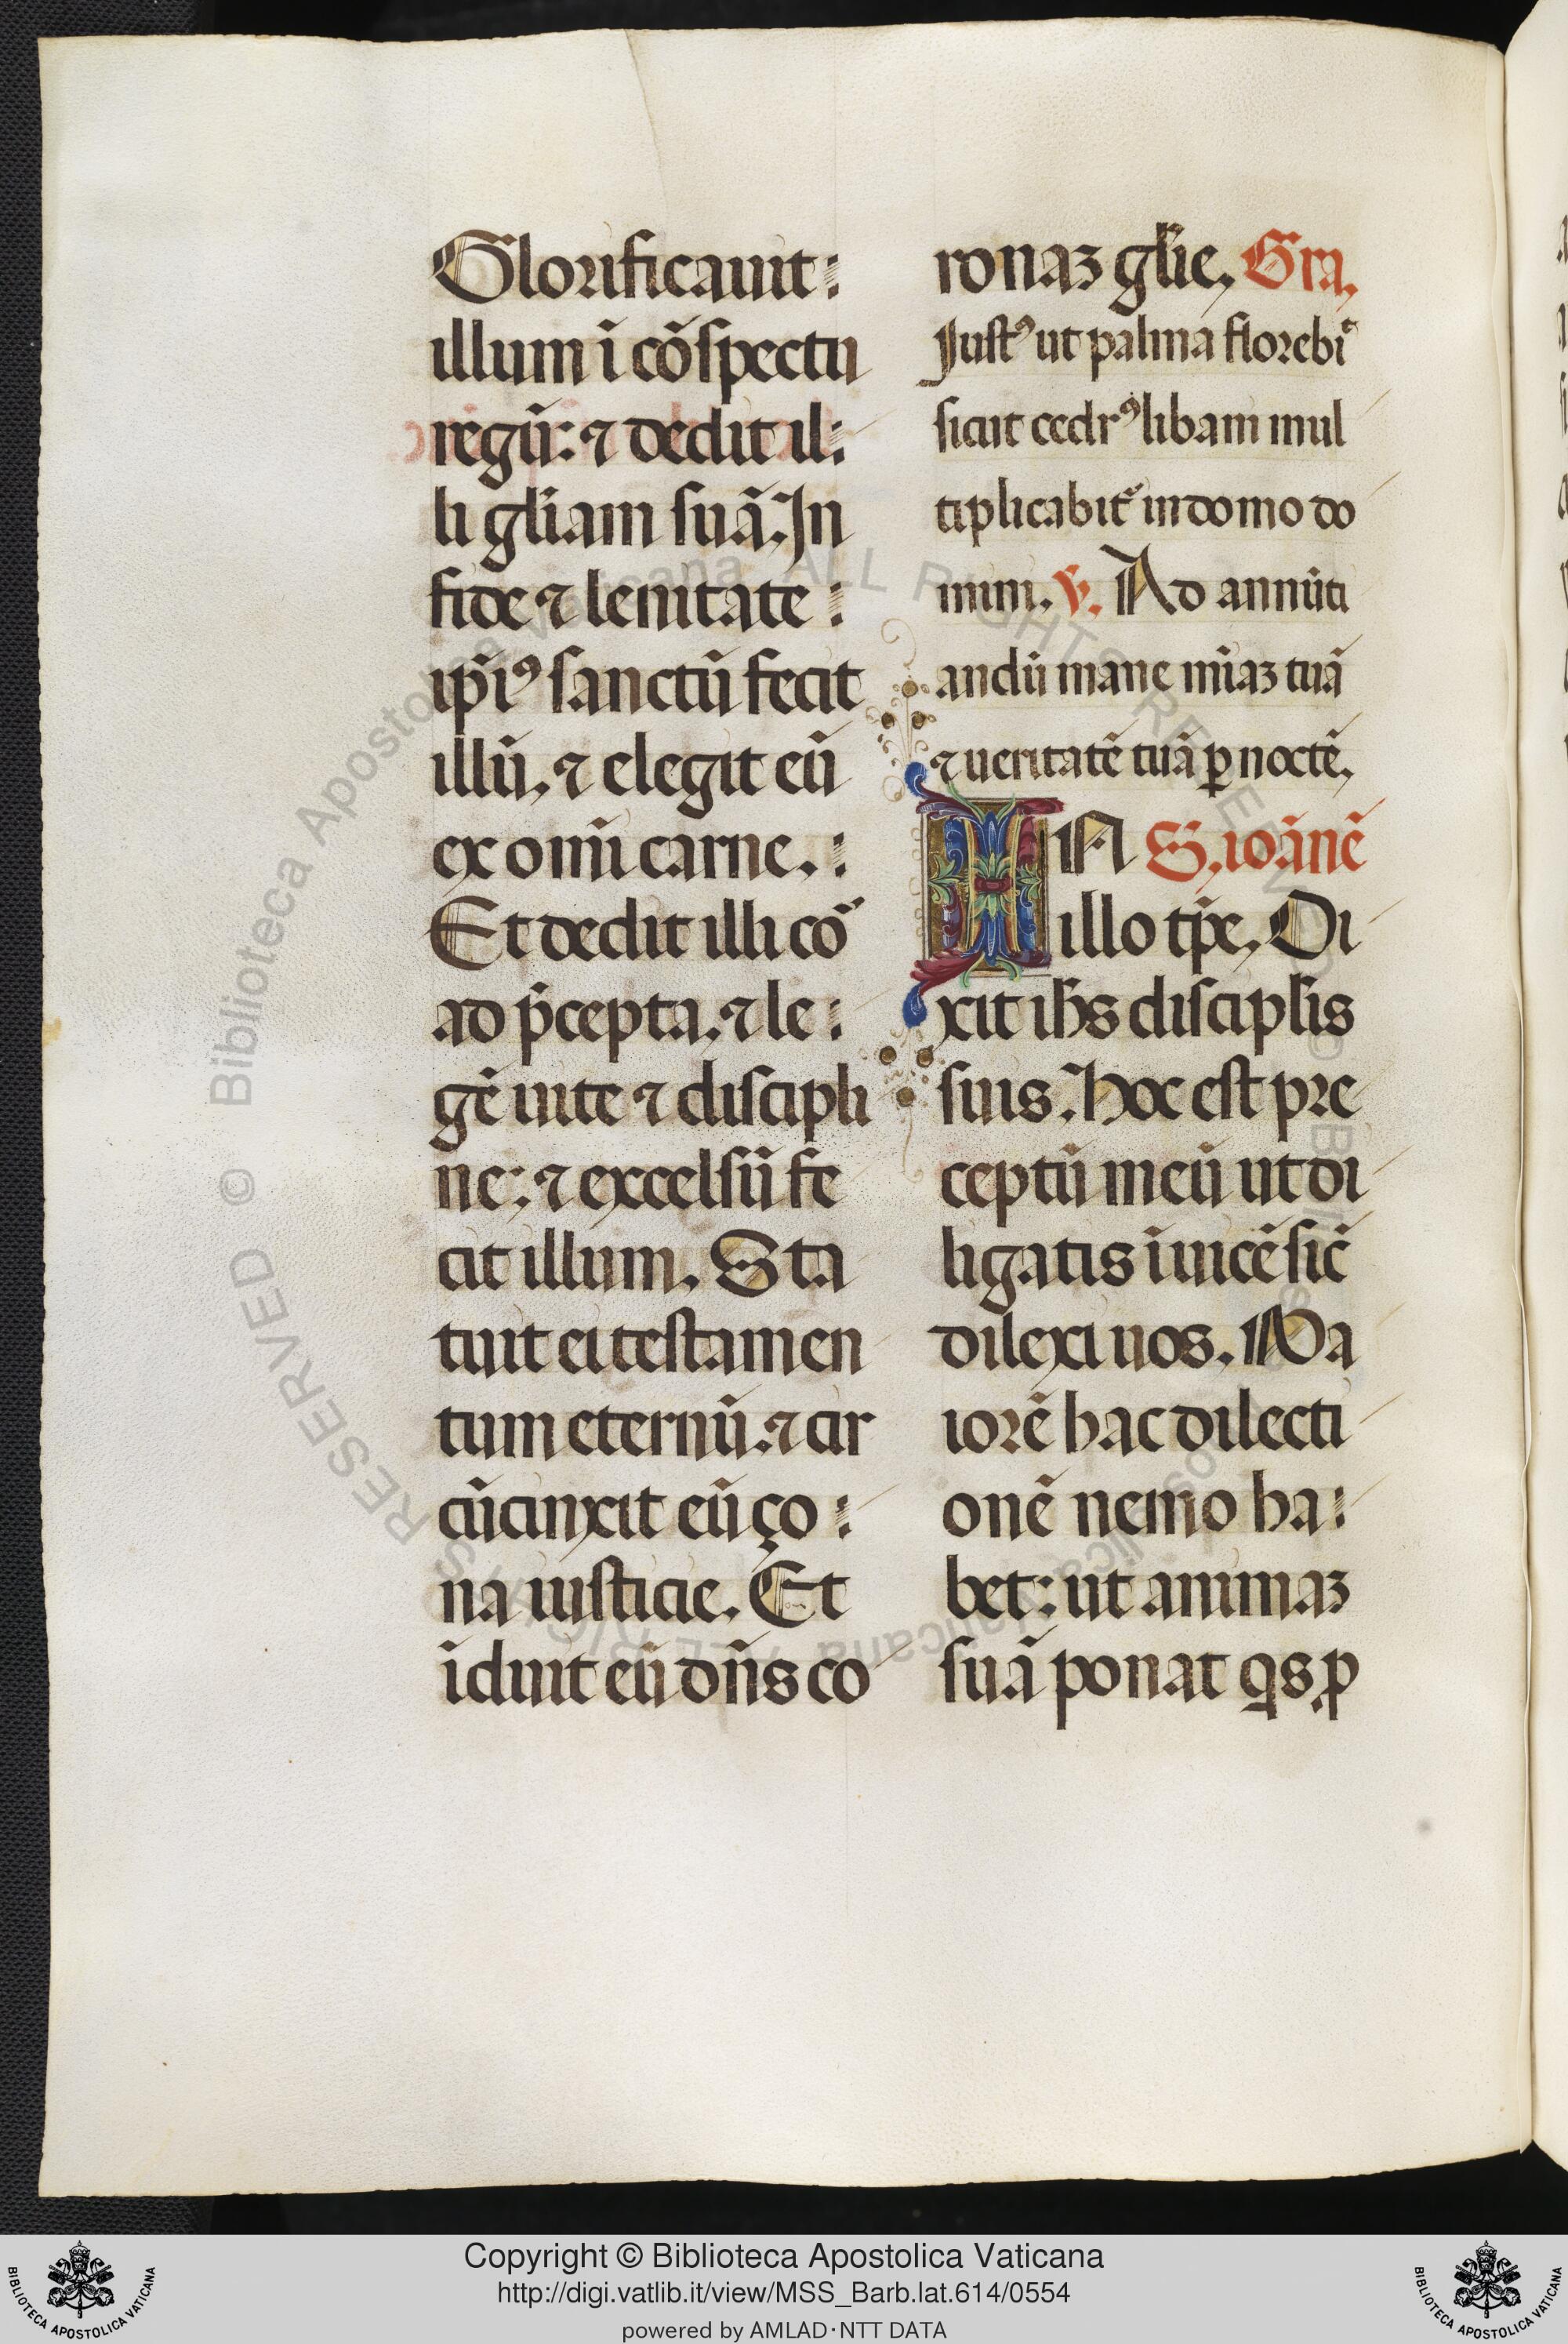 Glorificauit:
illum ĩ cõspectu
regũ: ⁊ dedit il:
li gl̃iam suã. In
fide ⁊ lenitate :
ip̃iꝰ sanctũ fecit
illũ, ⁊ elegit eũ
ex om̃i carne. :
Et dedit illi cõ
ad p̃cepta. ⁊ le :
gẽ uite ⁊ discipli
ne: ⁊ excelsũ fe
cit illum. Sta
tuit ei testamen
tum eternũ. ⁊ cir
cũcinxit eũ ço :
na iusticie. Et
ĩduit eũ dñs co
ronaꝫ gl̃ie. Gra.
Iustꝰ ut palma florebit̃
sicut cedrꝰ libani mul
tiplicabit̃ in domo do
mini. ℣. Ad annũti
andũ mane mĩaꝫ tuã
⁊ ueritatẽ tuã ꝑ noctẽ.
IN S. ioãnẽ
illo tp̃e. Di
xit ih̃s discipl̃is
suis. Hoc est pre
ceptũ meũ ut di
ligatis ĩuicẽ sic̃
dilexi uos. Ma
iorẽ hac dilecti
onẽ nemo ha:
bet: ut animaꝫ
suã ponat qs ꝓ
© Biblioteca Apostolica Vaticana ALL RIGHTS RESERVED
Copyright © Biblioteca Apostolica Vaticana
http://digi.vatlib.it/view/MSS_Barb.lat.614/0554
powered by AMLAD·NTT DATA
BIBLIOTECA APOSTOLICA VATICANA
BIBLIOTECA APOSTOLICA VATICANA